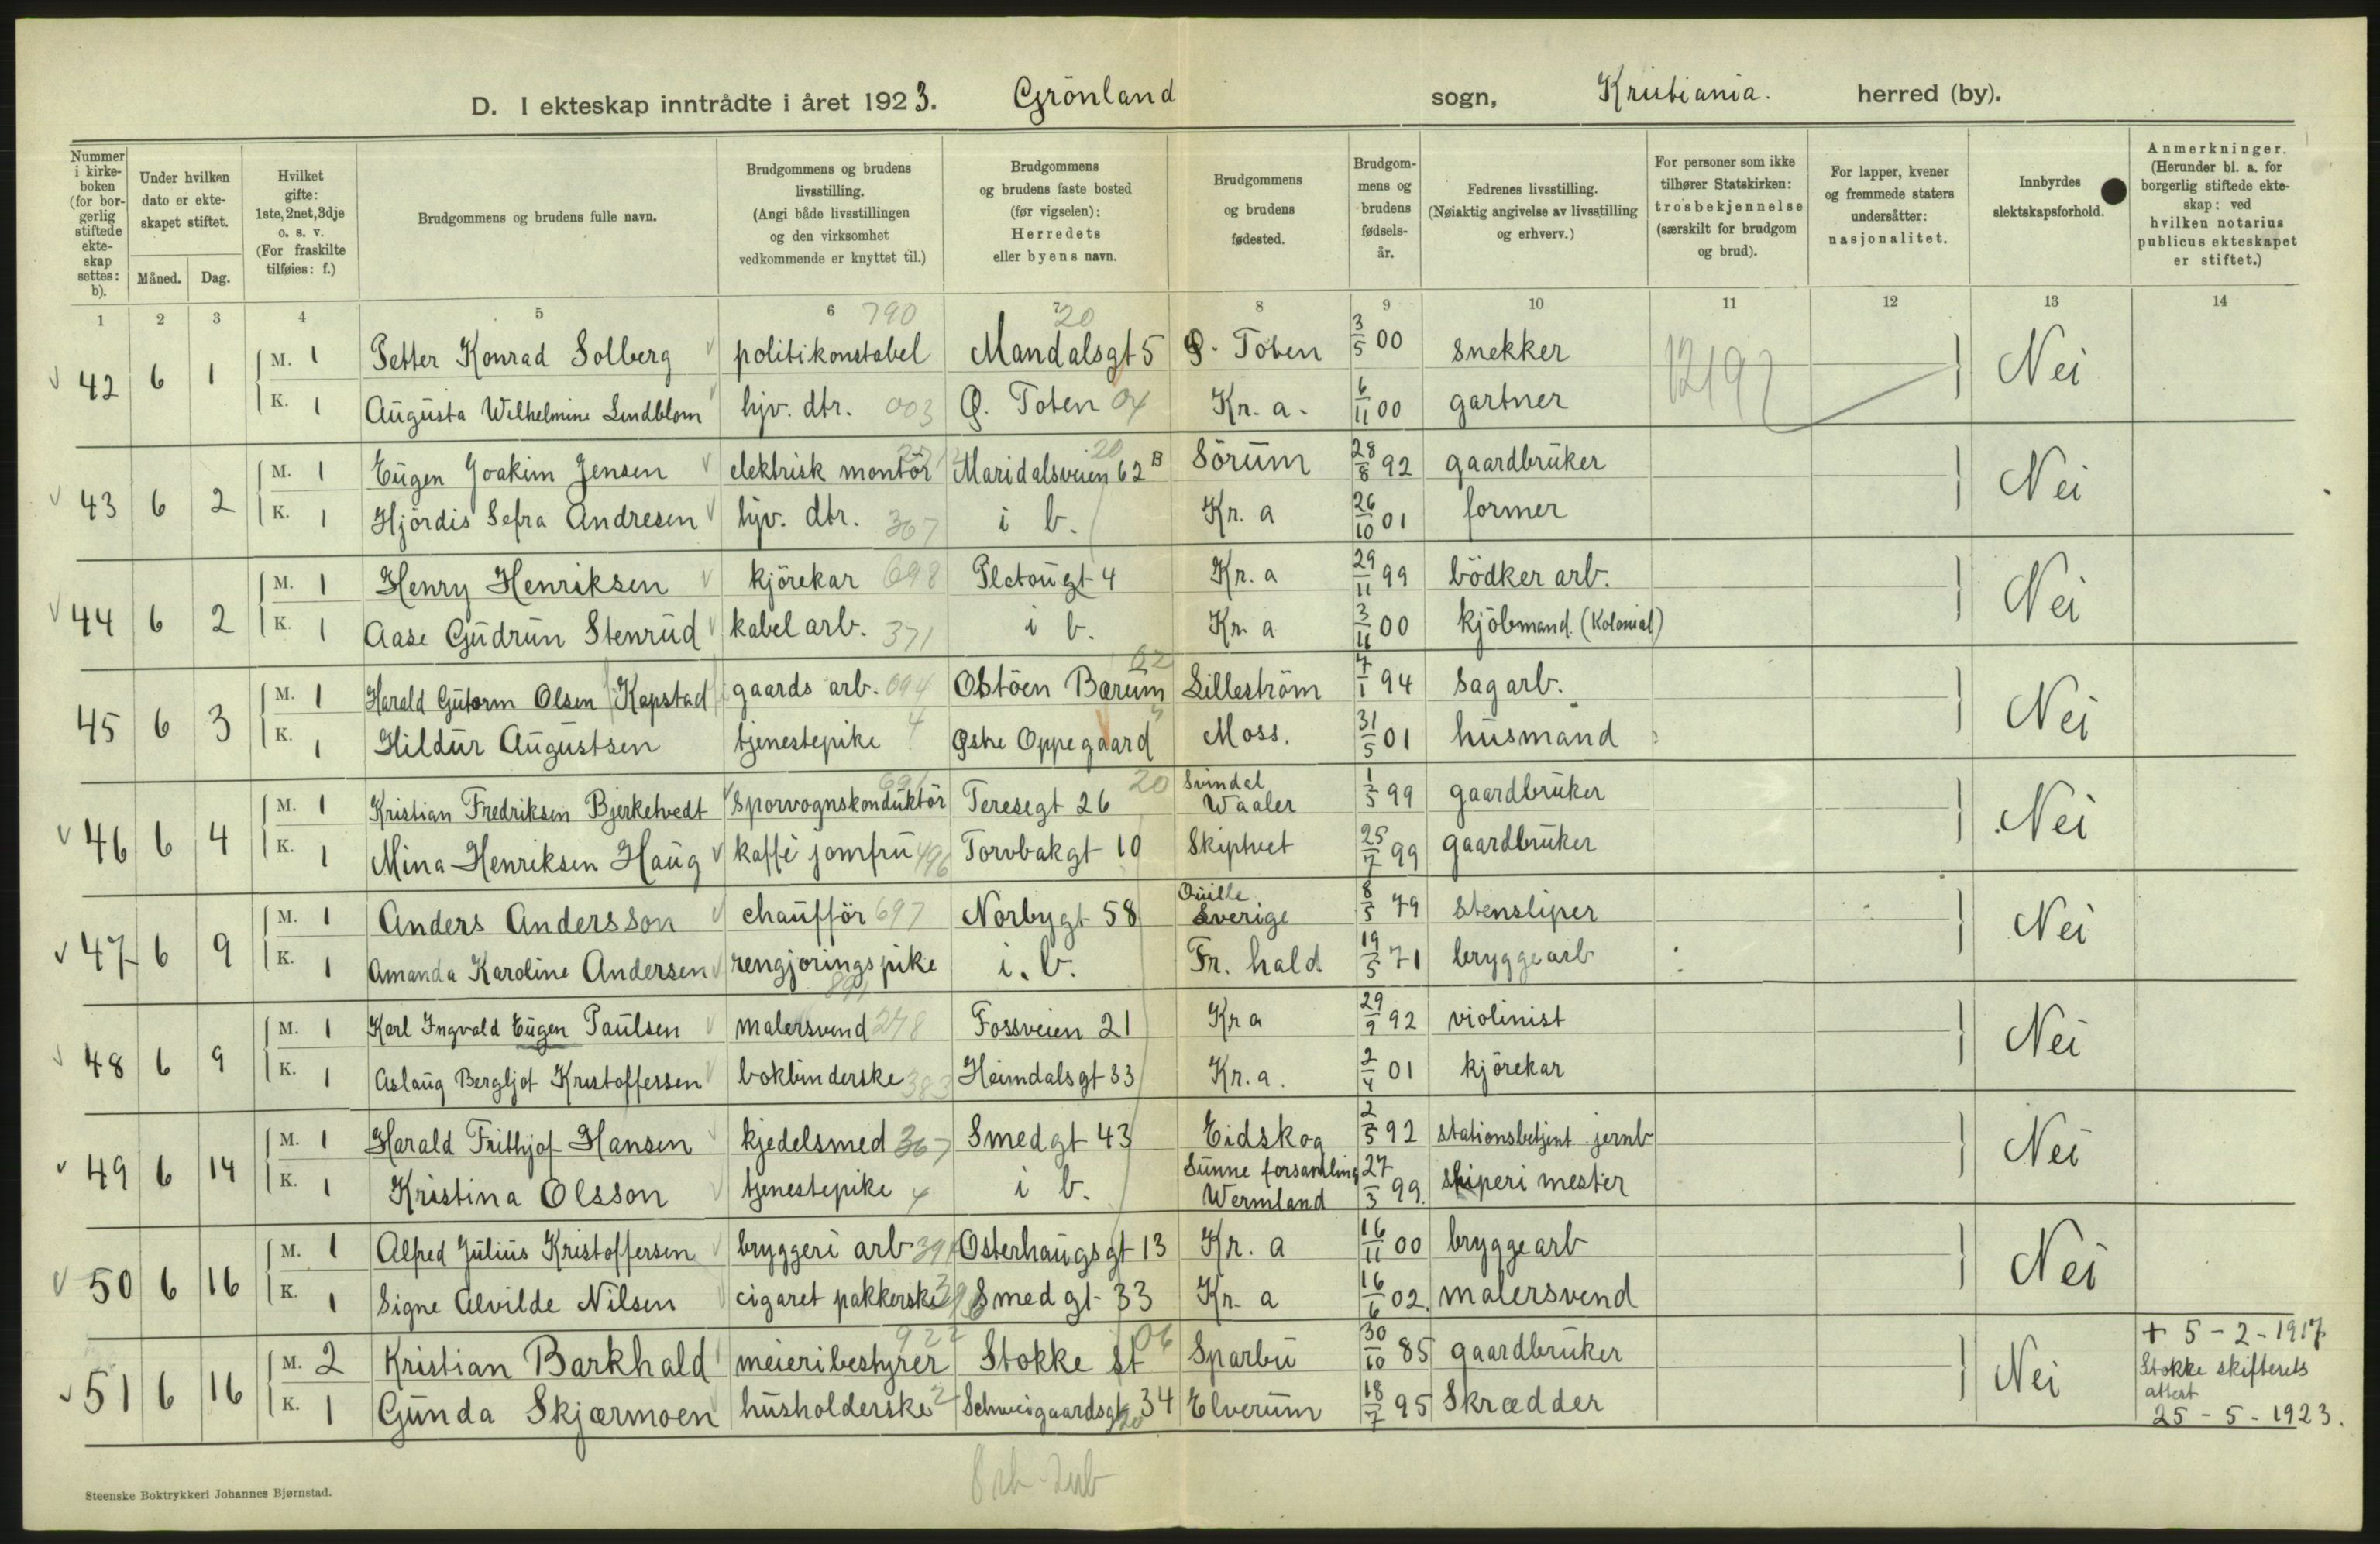 D. I ekteskap inntrådte i året 1923. Grönland sogn, Kristiania. herred (by).
Nummer i kirkeboken (for borgerlig stiftede ekteskap settes: b).
Under hvilken dato er ekteskapet stiftet.
Måned. Dag.
Hvilket gifte: 1ste, 2net, 3dje o. s. v. (For fraskilte tilføies: f.)
Brudgommens og brudens fulle navn.
Brudgommens og brudens livsstilling. (Angi både livsstillingen og den virksomhet vedkommende er knyttet til.)
Brudgommens og brudens faste bosted (før vigselen): Herredets eller byens navn.
Brudgommens og brudens fødested.
Brudgommens og brudens fødselsår.
Fedrenes livsstilling. (Nøiaktig angivelse av livsstilling og erhverv.)
For personer som ikke tilhører Statskirken: trosbekjennelse (særskilt for brudgom og brud).
For lapper, kvener og fremmede staters undersåtter: nasjonalitet.
Innbyrdes slektskapsforhold.
Anmerkninger. (Herunder bl. a. for borgerlig stiftede ekteskap: ved hvilken notarius publicus ekteskapet er stiftet.)
1 2 3 4 5 6 7 8 9 10 11 12 13 14
790 20
42 6 1 M. 1 Petter Konrad Solberg politikonstabel Mandalsgt 5 Ø. Toten 3/5 00 snekker Nei
K. 1 Augusta Wilhelmine Lindblom hjv. dtr. 003 Ø. Toten 04 Kr. a. 6/11 00 gartner
43 6 2 M. 1 Eugen Joakim Jensen elektrisk montör Maridalsveien 62 B 20 Sörum 28/8 92 gaardbruker Nei
K. 1 Hjördis Sefra Andresen hjv. dtr. 367 i b. Kr. a 26/10 01 former
44 6 2 M. 1 Henry Henriksen kjörekar 698 Platougt 4 Kr. a 29/11 99 bödker arb. Nei
K. 1 Aase Gudrun Stenrud kabel arb. 371 i b. Kr. a 3/11 00 kjöbmand. (Kolonial)
45 6 3 M. 1 Harald Gutorm Olsen Kapstad gaards arb. 094 Ostöen Bærum 02 Lilleström 7/1 94 sagarb. Nei
K. 1 Hildur Augustsen tjenestepike 4 Østre Oppegaard Moss. 31/5 01 husmand
46 6 4 M. 1 Kristian Fredriksen Bjerketvedt sporvognskonduktör 691 Teresegt 26 20 Svindal Waaler 1/5 99 gaardbruker Nei
K. 1 Mina Henriksen Haug kaffé jomfru 496 Torvbakgt 10 Skiptvet 25/7 99 gaardbruker
47 6 9 M. 1 Anders Andersson chaufför 697 Norbygt 58 Quille Sverige 8/5 79 stensliper Nei
K. 1 Amanda Karoline Andersen rengjöringspike 891 i. b. Fr. hald 19/5 71 bryggearb
48 6 9 M. 1 Karl Ingvald Eugen Paulsen malersvend 248 Fossveien 21 Kr a 29/9 92 violinist Nei
K. 1 Aslaug Bergljot Kristoffessen bokbinderske 383 Heimdalsgt 33 Kr. a. 2/4 01 kjörekar
49 6 14 M. 1 Harald Frithjof Hansen kjedelsmed 367 Smedgt 43 Eidskog 2/5 92 stationsbetjent jernb Nei
K. 1 Kristina Olsson tjenestepike 4 i b. Sunne forsamling Wermland 27/3 99. sliperi mester
50 6 16 M. 1 Alfred Julius Kristoffersen bryggeri arb 391 Osterhaugsgt 13 Kr. a 16/11 00 bryggearb Nei
K. 1 Signe Alvilde Nilsen cigaret pakkerske Smedgt 33 Kr. a 16/6 02. malersvend
51 6 16 M. 2 Kristian Barkhald meieribestyrer 922 Stokke st 06 Sparbu 30/10 85 gaardbruker Nei + 5 - 2 - 1917
Stokke skifterets attest
K. 1 Gunda Skjærmoen husholderske 2 Schweigaardsgt 34 20 Elverum 18/7 95 Skrædder 25 - 5 - 1923.
Steenske Boktrykkeri Johannes Bjørnstad.